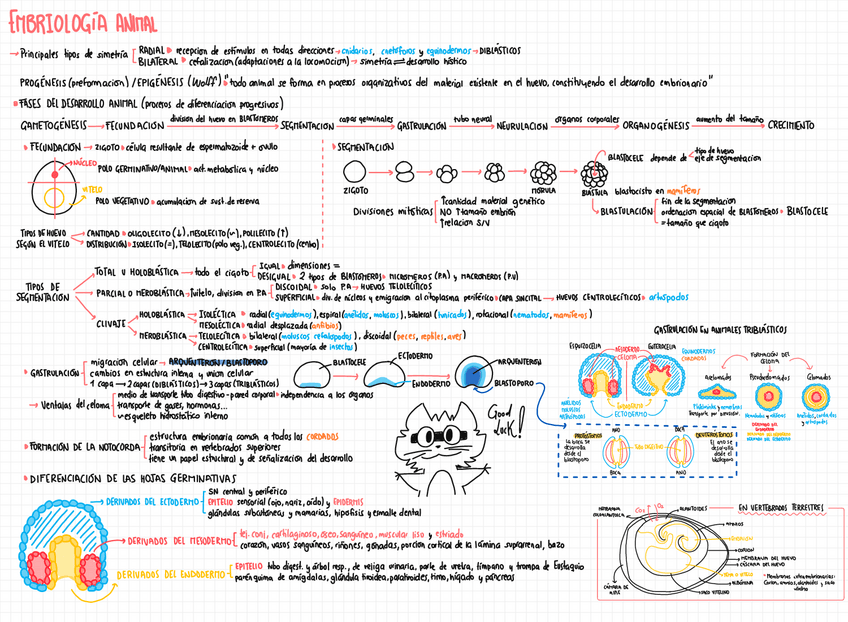 EMBRIOLOGÍA ANIMAL
→Principales tipos de simetría
RADIAL recepcion de estímulos en todas direcciones→cnidarios, ctetóforos y equinodermos→DIBLÁSTICOS
BILATERAL cefalizacion (adaptaciones a la locomocion)→simetría desarrollo hístico
PROGÉNESIS (preformacion)/EPIGÉNESIS (Wolff) "todo animal se forma en procesos organizativos del material existente en el huevo, constituyendo el desarrollo embrionario"
FASES DEL DESARROLLO ANIMAL (procesos de diferenciacion progresivos)
GAMETOGÉNESIS → FECUNDACIÓN división del huevo en BLASTÓMEROS SEGMENTACIÓN capas germinales GASTRULACIÓN tubo neural NEURULACIÓN órganos corporales ORGANOGÉNESIS aumento del tamaño CRECIMIENTO
FECUNDACIÓN → ZIGOTO célula resultante de espermatozoide + óvulo
NÚCLEO
POLO GERMINATIVO/ANIMAL act. metabólica y núcleo
VITELO
POLO VEGETATIVO acumulacion de sust. de reserva
TIPOS DE HUEVO SEGÚN EL VITELO
CANTIDAD OLIGOLECITO (↓), MESOLECITO (~), POLILECITO (↑)
DISTRIBUCIÓN ISOLECITO (=), TELOLECITO (polo veg.), CENTROLECITO (centro)
SEGMENTACIÓN
ZIGOTO
MÓRULA
BLÁSTULA
BLASTOCELE depende de
tipo de huevo
eje de segmentacion
blastocisto en mamíferos
BLASTULACIÓN
fin de la segmentacion
ordenacion espacial de BLASTÓMEROS BLASTOCELE
=tamaño que cigoto
Divisiones mitóticas
↑cantidad material genético
NO ↑tamaño embrión
↑relacion S/V
TIPOS DE SEGMENTACIÓN
TOTAL U HOLOBLÁSTICA → todo el cigoto
IGUAL dimensiones =
DESIGUAL 2 tipos de BLASTÓMEROS MICRÓMEROS (P.A) y MACRÓMEROS (P.V)
PARCIAL O MEROBLÁSTICA ↑vitelo, division en P.A
DISCOIDAL solo P.A→HUEVOS TELOLECÍTICOS
SUPERFICIAL div. de núcleos y emigracion al citoplasma periférico CAPA SINCITIAL → HUEVOS CENTROLECÍTICOS artrópodos
CLIVAJE
HOLOBLÁSTICA
ISOLÉCTICA radial (equinodermos), espiral (anélidos, moluscos), bilateral (tunicados), rotacional (nematodos, mamíferos)
MESOLÉCTICA radial desplazada (anfibios)
MEROBLÁSTICA
TELOLECÍTICA bilateral (moluscos cefalópodos), discoidal (peces, reptiles, aves)
CENTROLECÍTICA superficial (mayoría de insectos)
GASTRULACIÓN
migracion celular → ARQUÉNTERON/BLASTOPORO
cambios en estructura interna y union celular
1 capa → 2 capas (DIBLÁSTICOS) → 3 capas (TRIBLÁSTICOS)
BLASTOCELE
ECTODERMO
ENDODERMO
ARQUÉNTERON
BLASTOPORO
→Ventajas del celoma
medio de transporte tubo digestivo-pared corporal independencia a los órganos
transporte de gases, hormonas...
esqueleto hidrostático interno
Good Luck!
FORMACIÓN DE LA NOTOCORDA
estructura embrionaria común a todos los CORDADOS
transitoria en vertebrados superiores
tiene un papel estructural y de señalizacion del desarrollo
GASTRULACIÓN EN ANIMALES TRIBLÁSTICOS
ESQUIZOCELIA
ENTEROCELIA
MESODERMO
CELOMA
EQUINODERMOS
CORDADOS
ENDODERMO
ECTODERMO
ANÉLIDOS
MOLUSCOS
ARTRÓPODOS
FORMACIÓN DEL CELOMA
Acelomados
Pseudocelomados
Celomados
PROTÓSTOMOS
la boca se desarrolla desde el blastoporo
ANO
BOCA
TUBO DIGESTIVO
BOCA
ANO
DEUTERÓSTOMOS
El ano se desarrolla desde el blastoporo
DIFERENCIACIÓN DE LAS HOJAS GERMINATIVAS
DERIVADOS DEL ECTODERMO
SN central y periférico
EPITELIO sensorial (ojo, nariz, oído) y EPIDERMIS
glándulas subcutáneas y mamarias, hipófisis y esmalte dental
DERIVADOS DEL MESODERMO
tej. conj., cartilaginoso, óseo, sanguíneo, muscular liso y estriado
corazón, vasos sanguíneos, riñones, gónadas, porcion cortical de la lámina suprarrenal, bazo
DERIVADOS DEL ENDODERMO
EPITELIO tubo digest. y árbol resp., de vejiga urinaria, parte de uretra, tímpano y trompa de Eustaquio
parénquima de amígdalas, glándula tiroidea, paratiroides, timo, hígado y páncreas
EN VERTEBRADOS TERRESTRES
CO₂
O₂
ALANTOIDES
AMNIOS
EMBRIÓN
CORION
MEMBRANA DEL HUEVO
CÁSCARA DEL HUEVO
ALBÚMINA
SACO VITELINO
CÁMARA DE AIRE
*Membranas extraembrionarias: Corion, amnios, alantoides y saco vitelino